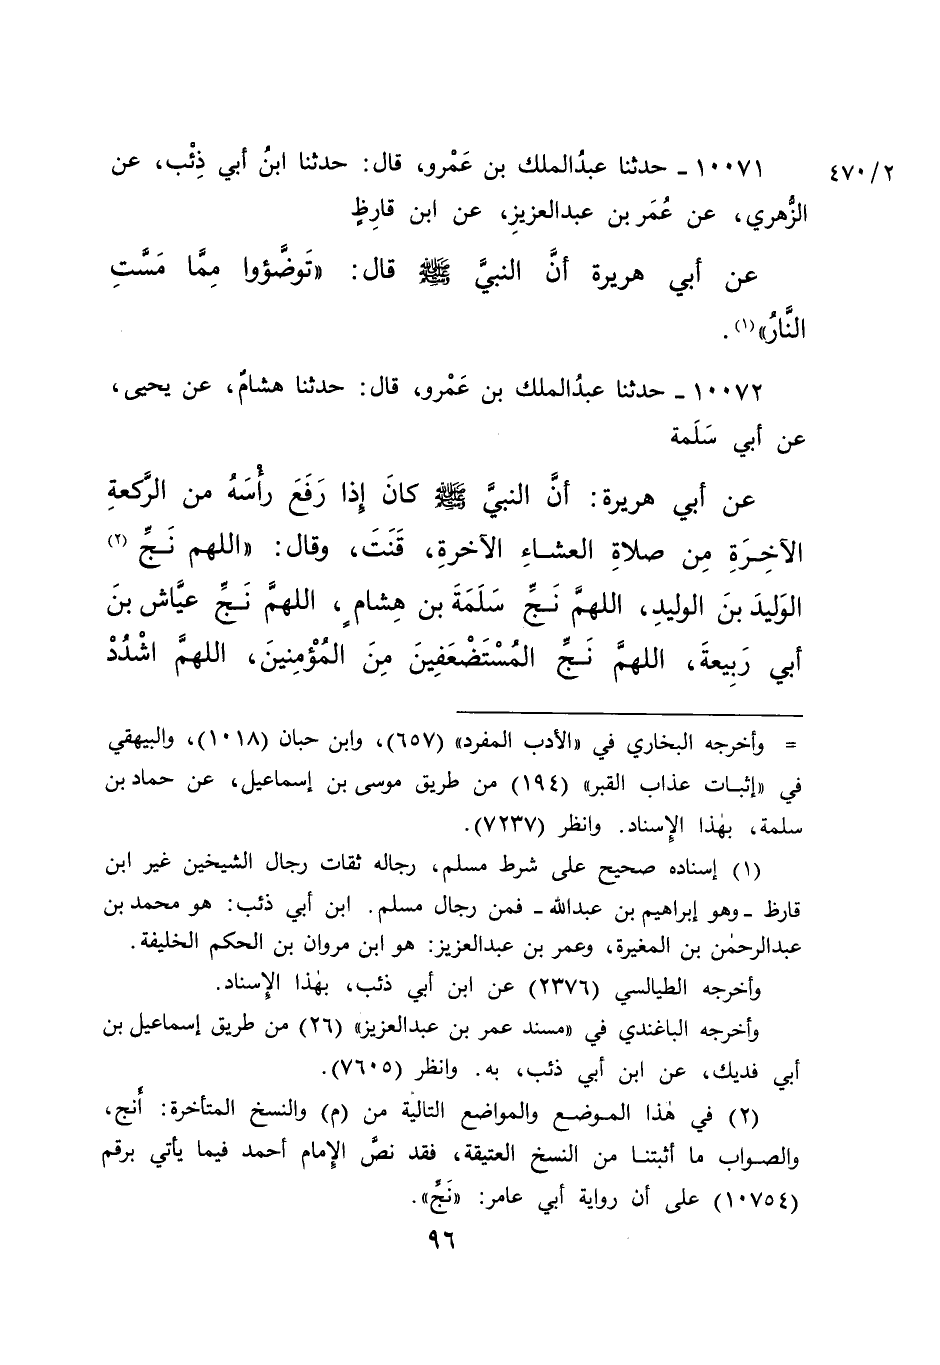 ٤٧٠/٢
١٠٠٧١ ـ حدثنا عبدُالملك بن عَمْرو، قال: حدثنا ابنُ أبي ذِئْب، عن
الزُّهري، عن عُمَر بن عبدالعزيزِ، عن ابن قارِظٍ
عن أبي هريرة أنَّ النبيَّ ﷺ قال: «تَوضَّؤوا مِمَّا مَسَّتِ
النَّارُ»(١).
١٠٠٧٢ ـ حدثنا عبدُالملك بن عَمْرو، قال: حدثنا هشامٌ، عن يحيى،
عن أبي سَلَمة
عن أبي هريرة: أنَّ النبيَّ ﷺ كانَ إِذا رَفَعَ رأْسَهُ من الرَّكعةِ
الآخِرَةِ مِن صلاةِ العشاءِ الآخرةِ، قَنَتَ، وقال: «اللهم نَجِّ(٢)
الوَليدَ بنَ الوليدِ، اللهمَّ نَجِّ سَلَمَةَ بن هِشامٍ، اللهمَّ نَجِّ عيَّاش بنَ
أبي رَبِيعةَ، اللهمَّ نَجِّ المُسْتَضْعَفِينَ مِنَ المُؤْمنِينَ، اللهمَّ اشْدُدْ
= وأخرجه البخاري في «الأدب المفرد» (٦٥٧)، وابن حبان (١٠١٨)، والبيهقي
في «إثبات عذاب القبر» (١٩٤) من طريق موسى بن إسماعيل، عن حماد بن
سلمة، بهٰذا الإِسناد. وانظر (٧٢٣٧).
(١) إسناده صحيح على شرط مسلم، رجاله ثقات رجال الشيخين غير ابن
قارظ ـ وهو إبراهيم بن عبدالله ـ فمن رجال مسلم. ابن أبي ذئب: هو محمد بن
عبدالرحمٰن بن المغيرة، وعمر بن عبدالعزيز: هو ابن مروان بن الحكم الخليفة.
وأخرجه الطيالسي (٢٣٧٦) عن ابن أبي ذئب، بهٰذا الإِسناد.
وأخرجه الباغندي في «مسند عمر بن عبدالعزيز» (٢٦) من طريق إسماعيل بن
أبي فديك، عن ابن أبي ذئب، به. وانظر (٧٦٠٥).
(٢) في هٰذا الموضع والمواضع التالية من (م) والنسخ المتأخرة: أَنج،
والصواب ما أثبتنا من النسخ العتيقة، فقد نصَّ الإمام أحمد فيما يأتي برقم
(١٠٧٥٤) على أن رواية أبي عامر: «نَجِّ».
٩٦